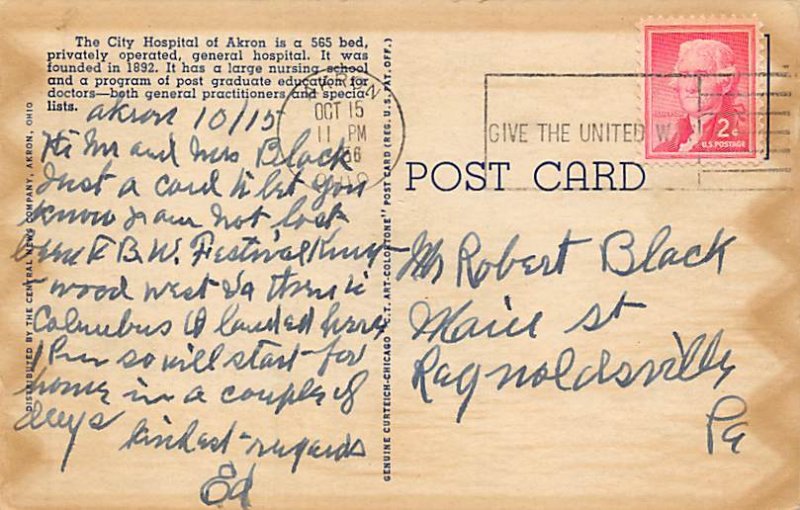 The City Hospital of Akron is a 565 bed,
privately operated, general hospital. It was
founded in 1892. It has a large nursing school
and a program of post graduate education for
doctors—both general practitioners and specia-
lists.
Akron 10/15
Hi Mr and Mrs Black
Just a card to let you
know I am not lost
B.W. Festival King-
wood west Va then to
Columbus & landed here
1 P.M. so will start for
home in a couple of
days
kindest regards
Ed
DISTRIBUTED BY THE CENTRAL NEWS COMPANY, AKRON, OHIO
GENUINE CURTEICH-CHICAGO "C.T. ART-COLORTONE" POST CARD (REG. U.S. PAT. OFF.)
AKRON
OCT 15
11 PM
56
OHIO
GIVE THE UNITED WAY
2¢
U.S. POSTAGE
POST CARD
Mr Robert Black
Main St
Reynoldsville
Pa